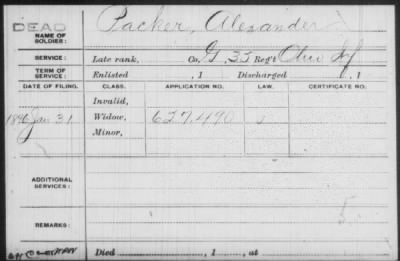 DEAD
NAME OF SOLDIER: Packer, Alexander
SERVICE: Late rank, Co. G 35 Reg't Ohio Inf
TERM OF SERVICE: Enlisted , 1 Discharged , 1
DATE OF FILING. CLASS. APPLICATION NO. LAW. CERTIFICATE NO.
Invalid,
1896 Jan 31 Widow, 627.490
Minor,
ADDITIONAL SERVICES:
REMARKS:
Died , 1 , at